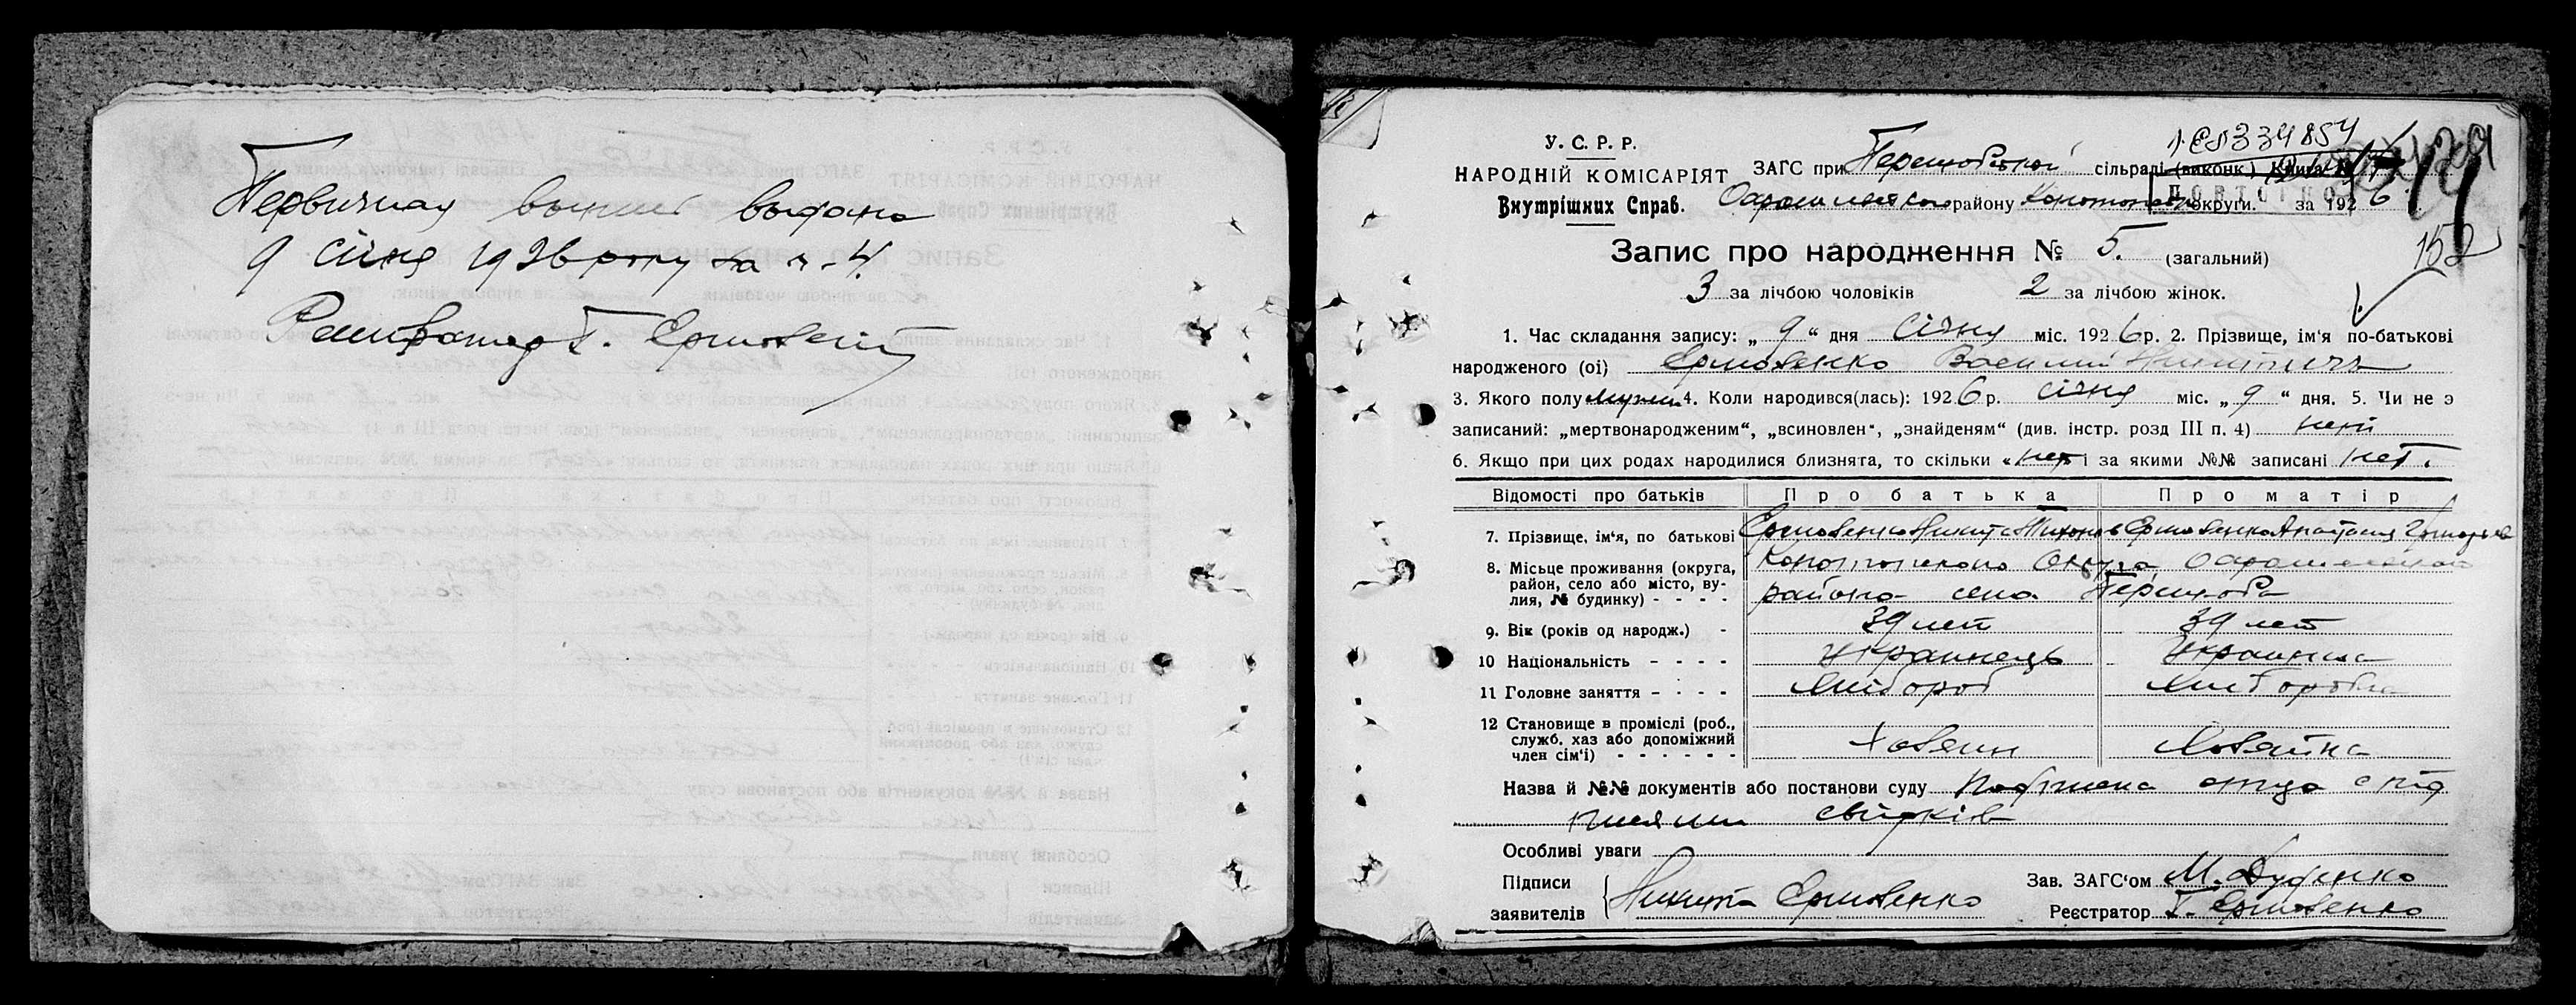 Первичная выпись выдана
9 січня 1926 року за ч-4.
Реєстратор Т.
1. ЕЛ 334854
У. С. Р. Р.
НАРОДНІЙ КОМІСАРІЯТ
Внутрішних Справ.
ЗАГС при сільраді (виконк.) Книга №
району Конотопськ округи. за 1926
ПОВТОРНО
152
Запис про народження № 5. (загальний)
3 за лічбою чоловіків 2 за лічбою жінок.
1. Час складання запису: „ 9 “ дня січня міс. 1926 р. 2. Прізвище, ім'я по-батькові
народженого (ої) Василий Никитичь
3. Якого полу мужск 4. Коли народився(лась): 1926 р. січня міс. „ 9 “ дня. 5. Чи не э
записаний: „мертвонародженим“, „всиновлен“, „знайденям“ (див. інстр. розд III п. 4) нет
6. Якщо при цих родах народилися близнята, то скільки нет і за якими №№ записані нет.
Відомості про батьків Про батька Про матір
7. Прізвище, ім'я, по батькові Никита Тихонов Анастасия Григорьев
8. Місьце проживання (округа, район, село або місто, вулия, № будинку) - - - - Конотопского Округа
района села
9. Вік (років од народж.) - 39 лет 39 лет
10 Національність - - - - Украинець Украинка
11 Головне заняття - - - - Хлібороб Хлиборобка
12 Становище в проміслі (роб., служб, хаз або допоміжний член сім'ї) - - - - - - Хозяин Хозяйка
Назва й №№ документів або постанови суду отца с під
писями свідків
Особливі уваги
Підписи
заявителів Никита
Зав. ЗАГС'ом М. Дуденко
Реєстратор Т.